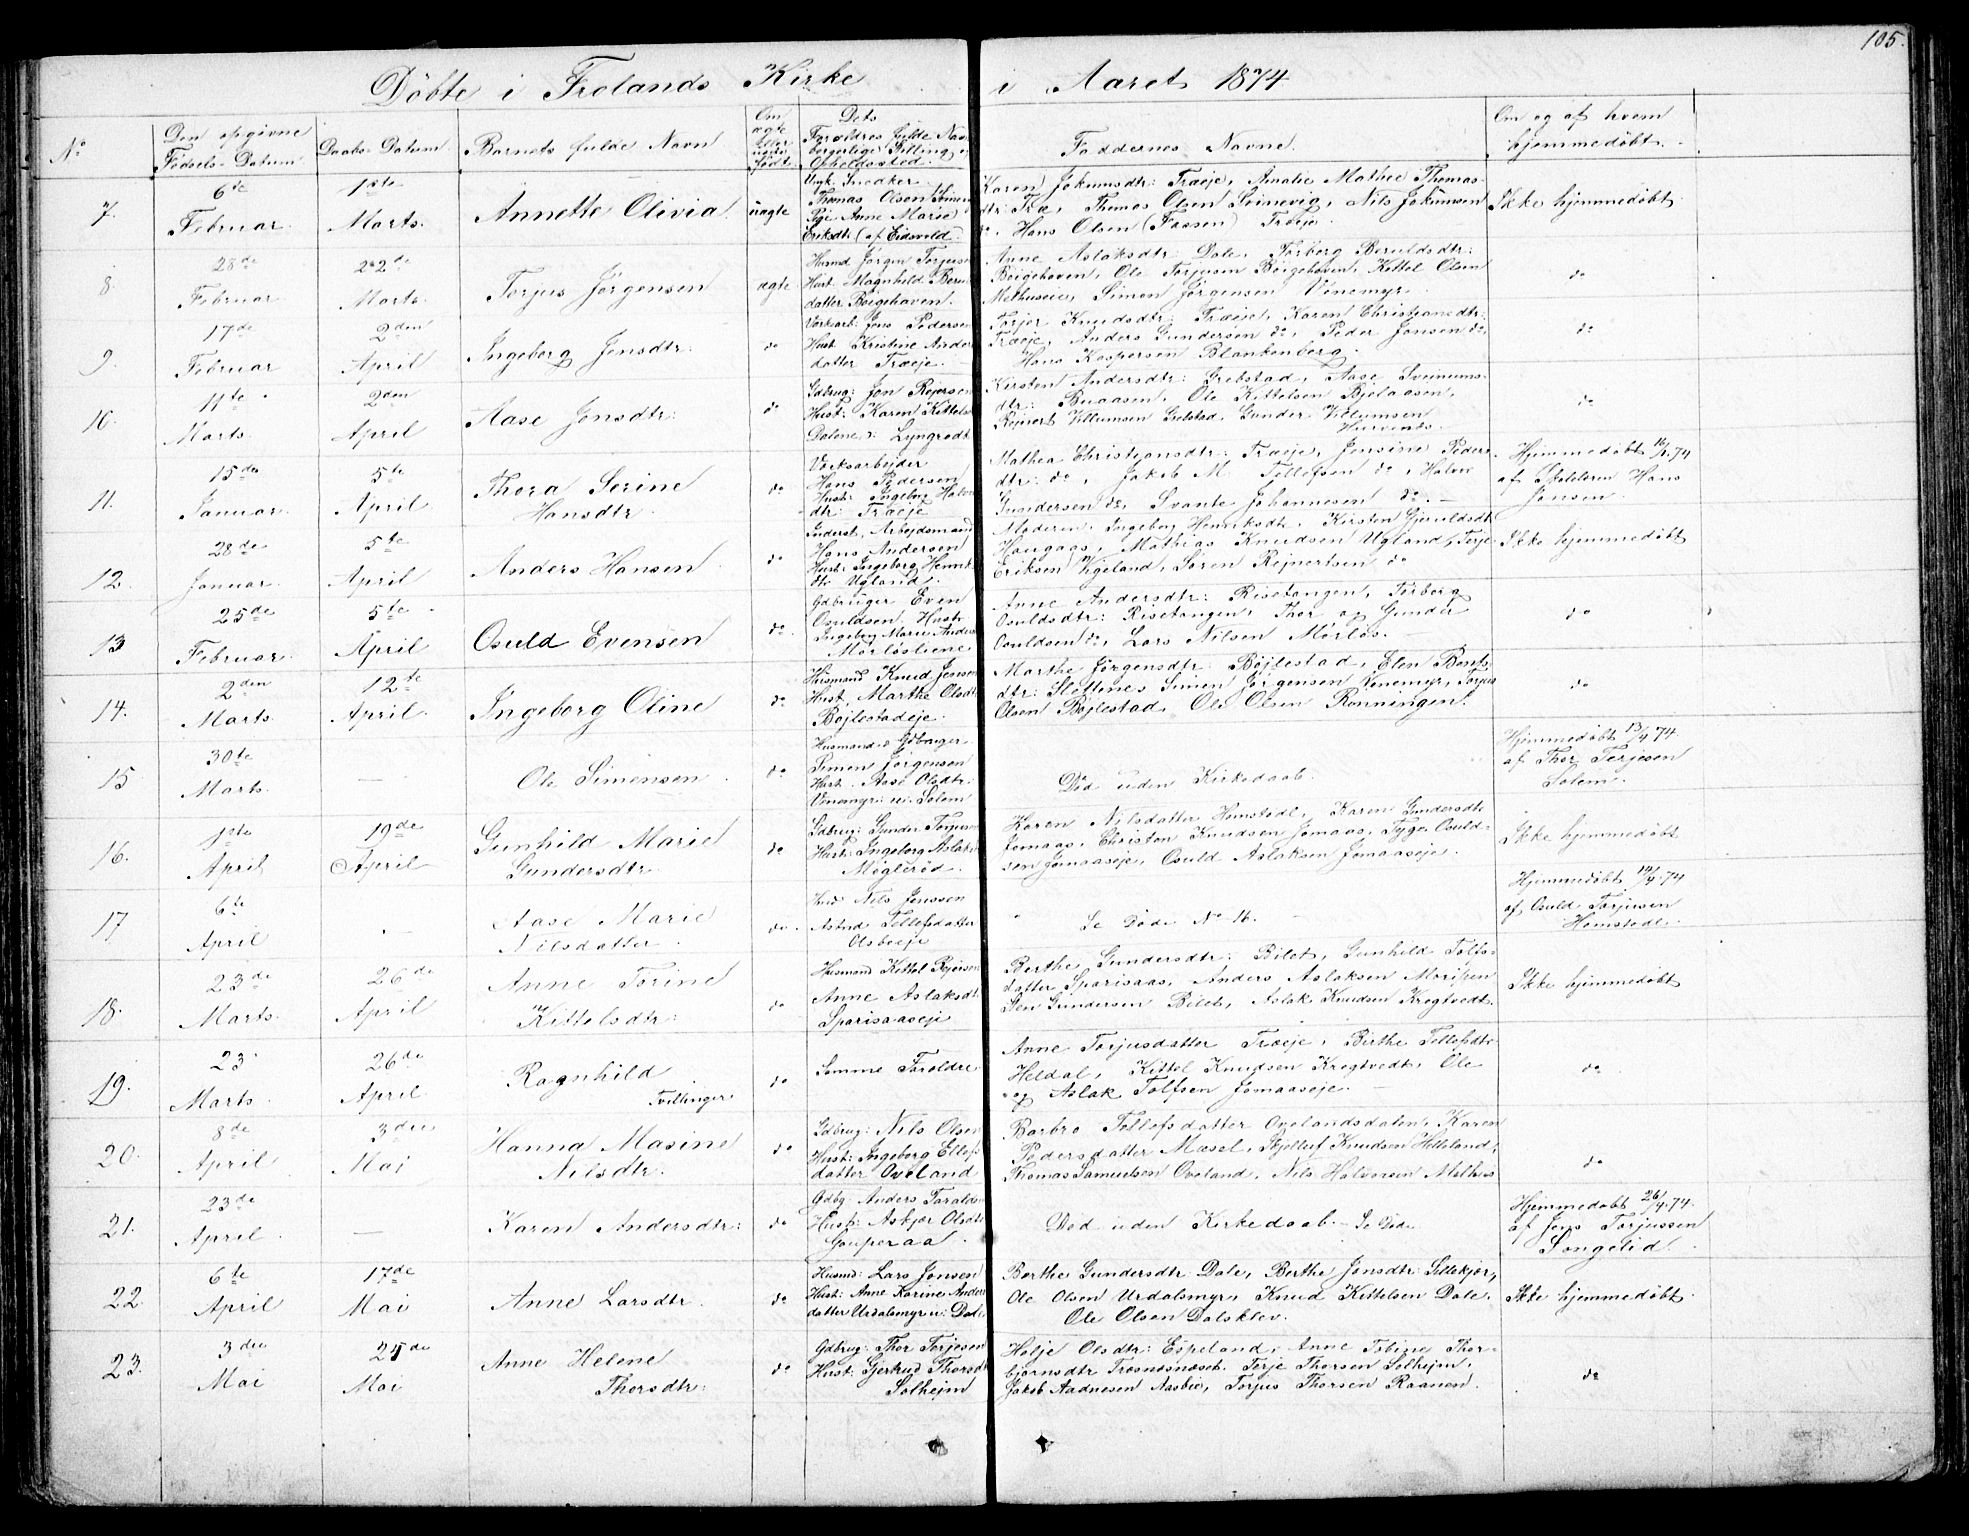 105.
Döbte i Frolands Kirke i Aaret 1874
No
Den opgivne Födsels-Datum
Daabs-Datum
Barnets fulde Navn
Om ægte eller uægte födt
Dets Forældres fulde Navn borgerlige Stilling Opholdssted.
Faddernes Navne.
Om og af hvem hjemmedöbt.
7.
6te Februar
1ste Marts.
Annette Olivia
uægte
Ungk. Snedker
Thomas Olsen
Pige Anne Marie
Eriksdtr. (af Eidsvold.)
Karen Jokumsdtr: Træeje, Amalie Mathee Thomas-
dtr: Træ, Thomas Olsen Grinevig, Nils Jokumsen
do, Hans Olsen (Fassen) Træeje.
Ikke hjemmedöbt
8
28de Februar
22de Marts.
Torjus Jörgensen
ægte
Husmd Jörgen Torjusen
Hust. Magnhild Berulds
datter Böigehaven.
Anne Aslaksdtr: Dale, Torborg Beruldsdtr:
Böigehaven, Ole Torjusen Böigehaven, Kittel Olsen
Molhuseie, Simon Jörgensen Vënemyr.
do
9.
17de Februar
2den April
Ingeborg Jensdtr:
do
Værkarb: Jens Pedersen
Hust. Kristine Anders
datter Træeje.
Torjer Knudsdtr: Træeje, Karen Christiansdtr:
Træeje, Anders Gundersen do, Peder Jensen do,
Hans Kaspersen Blankenberg.
do
10.
11te Marts.
2den April
Aase Jonsdtr:
do
Gdbrug: Jon Rejersen
Hust: Karen Kittels
Dalene, Lyngrodt
Kirsten Andersdtr: Grebstad, Aase Sveinums-
dtr: Buaasen, Ole Kittelsen Bjelaasen,
Rejnert Villumsen Grebstad, Gunder Villumsen
Hurvenes.
do
11.
15de Januar.
5te April
Thora Serine
Hansdtr.
do
Værksarbejder
Hans Pedersen
Hust: Ingeborg Halvor
dtr: Træeje
Mathea Christiansdtr: Træeje, Jensine Peders-
dtr: do, Jakob M. Tellefsen do, Halvor
Gundersen do, Svante Johannesen do.
Hjemmedöbt 16/1 74
af Skolelæren Hans
Jensen.
12.
28de Januar.
5te April
Anders Hansen
do
Inderst, Arbejdsmand
Hans Andersen
Hust: Ingeborg Henrik
dtr Ugland.
Moderen, Ingeborg Henriksdtr, Kirsten Gjeruldsdtr
Haugaas, Mathias Knudsen Ugland, Terje
Eriksen Vigeland, Sören Rejnertsen do
Ikke hjemmedöbt
13
25de Februar.
5te April
Osuld Evensen
do
Gdbruger Even
Osuldsen, Hust.
Ingeborg Marie Anders
Mörlösliene.
Anne Andersdtr: Risetangen, Torborg
Osuldsdtr: Risetangen, Thor og Gunder
Osuldsen do, Lars Nilsen Mörlös.
do
14.
2den Marts.
12te April.
Ingeborg Oline
do
Husmand Knud Jensen
Hust. Marthe Olsdtr
Böjlestadeje.
Marthe Jörgensdtr: Böjlestad, Elen Bents-
dtr: Slettenes Simen Jörgensen Vënemyr, Torjus
Olsen Böjlestad, Ole Olsen Rönningen.
do
15
30te Marts.
—
Ole Simensen
do
Husmand o Gdbruger
Simon Jörgensen
Hust. Aase Olsdtr:
Vënemyr: u: Solem
Död uden Kirkedaab.
Hjemmedöbt 13/4 74
af Thor Terjesen
Solem.
16.
1ste April
19de April
Gunhild Marie
Gundersdtr
do
Gdbrug: Gunder Torjusen
Hust: Ingeborg Aslaks
Mögleröd
Karen Nilsdatter Homstöel, Karen Gundersdtr
Jomaas, Christen Knudsen Jomaas, Tyge Osuld-
sen Jomaaseje, Osuld Aslaksen Jomaaseje.
Ikke hjemmedöbt
17
6te April
—
Aase Marie
Nilsdatter
do
Husd Nils Jensen
Astrid Tellefsdatter
Osboeje
Se Döde No 16.
Hjemmedöbt 14/4 74
af Osuld Torjusen
Homstöel.
18.
23de Marts.
26de April
Anne Torine
Kittelsdtr:
do
Husmand Kittel Rejersen
Anne Aslaksdtr
Sparisaaseje
Berthe Gundersdtr: Bilet, Gunhild Tolfs-
datter Sparisaas, Anders Aslaksen Morisen
Sten Gundersen Bilet, Aslak Knudsen Krogtvedt.
Ikke hjemmedöbt
19.
23 Marts.
26de April
Ragnhild
Tvillinger
do
Samme Forældre
Anne Torjusdatter Træeje, Birthe Tellefsdtr
Heldal, Kittel Knudsen Krogtvedt, Ole
og Aslak Tolfsen Jomaaseje.
do
20.
8de April
3die Mai
Hanna Masine
Nilsdtr.
do
Gdbrug: Nils Olsen
Hust: Ingeborg Ellefs
datter Oveland
Barbro Tellefsdatter Ovelandsdalen, Karen
Pedersdatter Mæsel, Skjellef Knudsen Helleland,
Thomas Samuelsen Oveland, Nils Halvorsen Molhus
do
21.
23de April
—
Karen Andersdtr:
do
Gdbg: Anders Taralds
Hust: Askjer Olsdtr
Gouperaa.
Död uden Kirkedaab.— Se Döde
Hjemmedöbt 26/4 74.
af Jens Torjussen
Songelid.
22
6te April
17de Mai
Anne Larsdtr.
do
Husmd: Lars Jensen
Hust: Anne Karine Anders
datter Urdalsmyr u: Dale
Berthe Gundersdtr Dale, Berthe Jonsdtr: Lillekjær,
Ole Olsen Urdalsmyr, Knud Kittelsen Dale,
Ole Olsen Dalsklev.
Ikke hjemmedöbt
23.
3die Mai
25de Mai
Anne Helene
Thorsdtr:
do
Gdbrug: Thor Torjesen
Hust: Gjertrud Thorsdtr
Solhejm
Hælje Olsdtr: Espeland, Anne Tobine Thor-
björnsdtr Trosnesneset. Terje Thorsen Solhejm,
Jakob Aadnesen Aasbie, Torjus Thorsen Raanen.
do